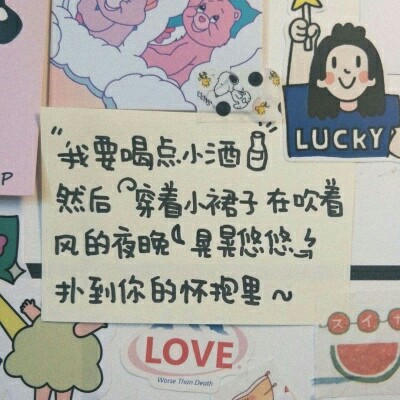 LUCKY
P
"我要喝点小酒
然后穿着小裙子在吹着
风的夜晚晃晃悠悠
扑到你的怀抱里~
LOVE
Worse Than Death
スイカ